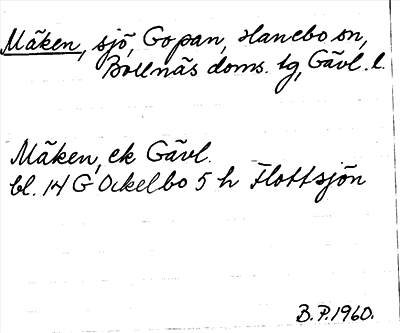 Mäken, sjö, Gopan, Hanebo sn,
Bollnäs doms. tg, Gävl. l.
Mäken, ek Gävl.
bl. 14 G Ockelbo 5 h Flottsjön
B.P. 1960.